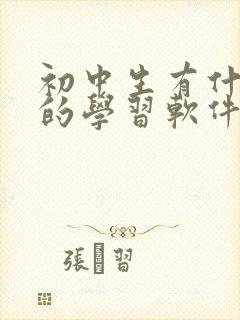 初中生有什
的學習軟件
張 習